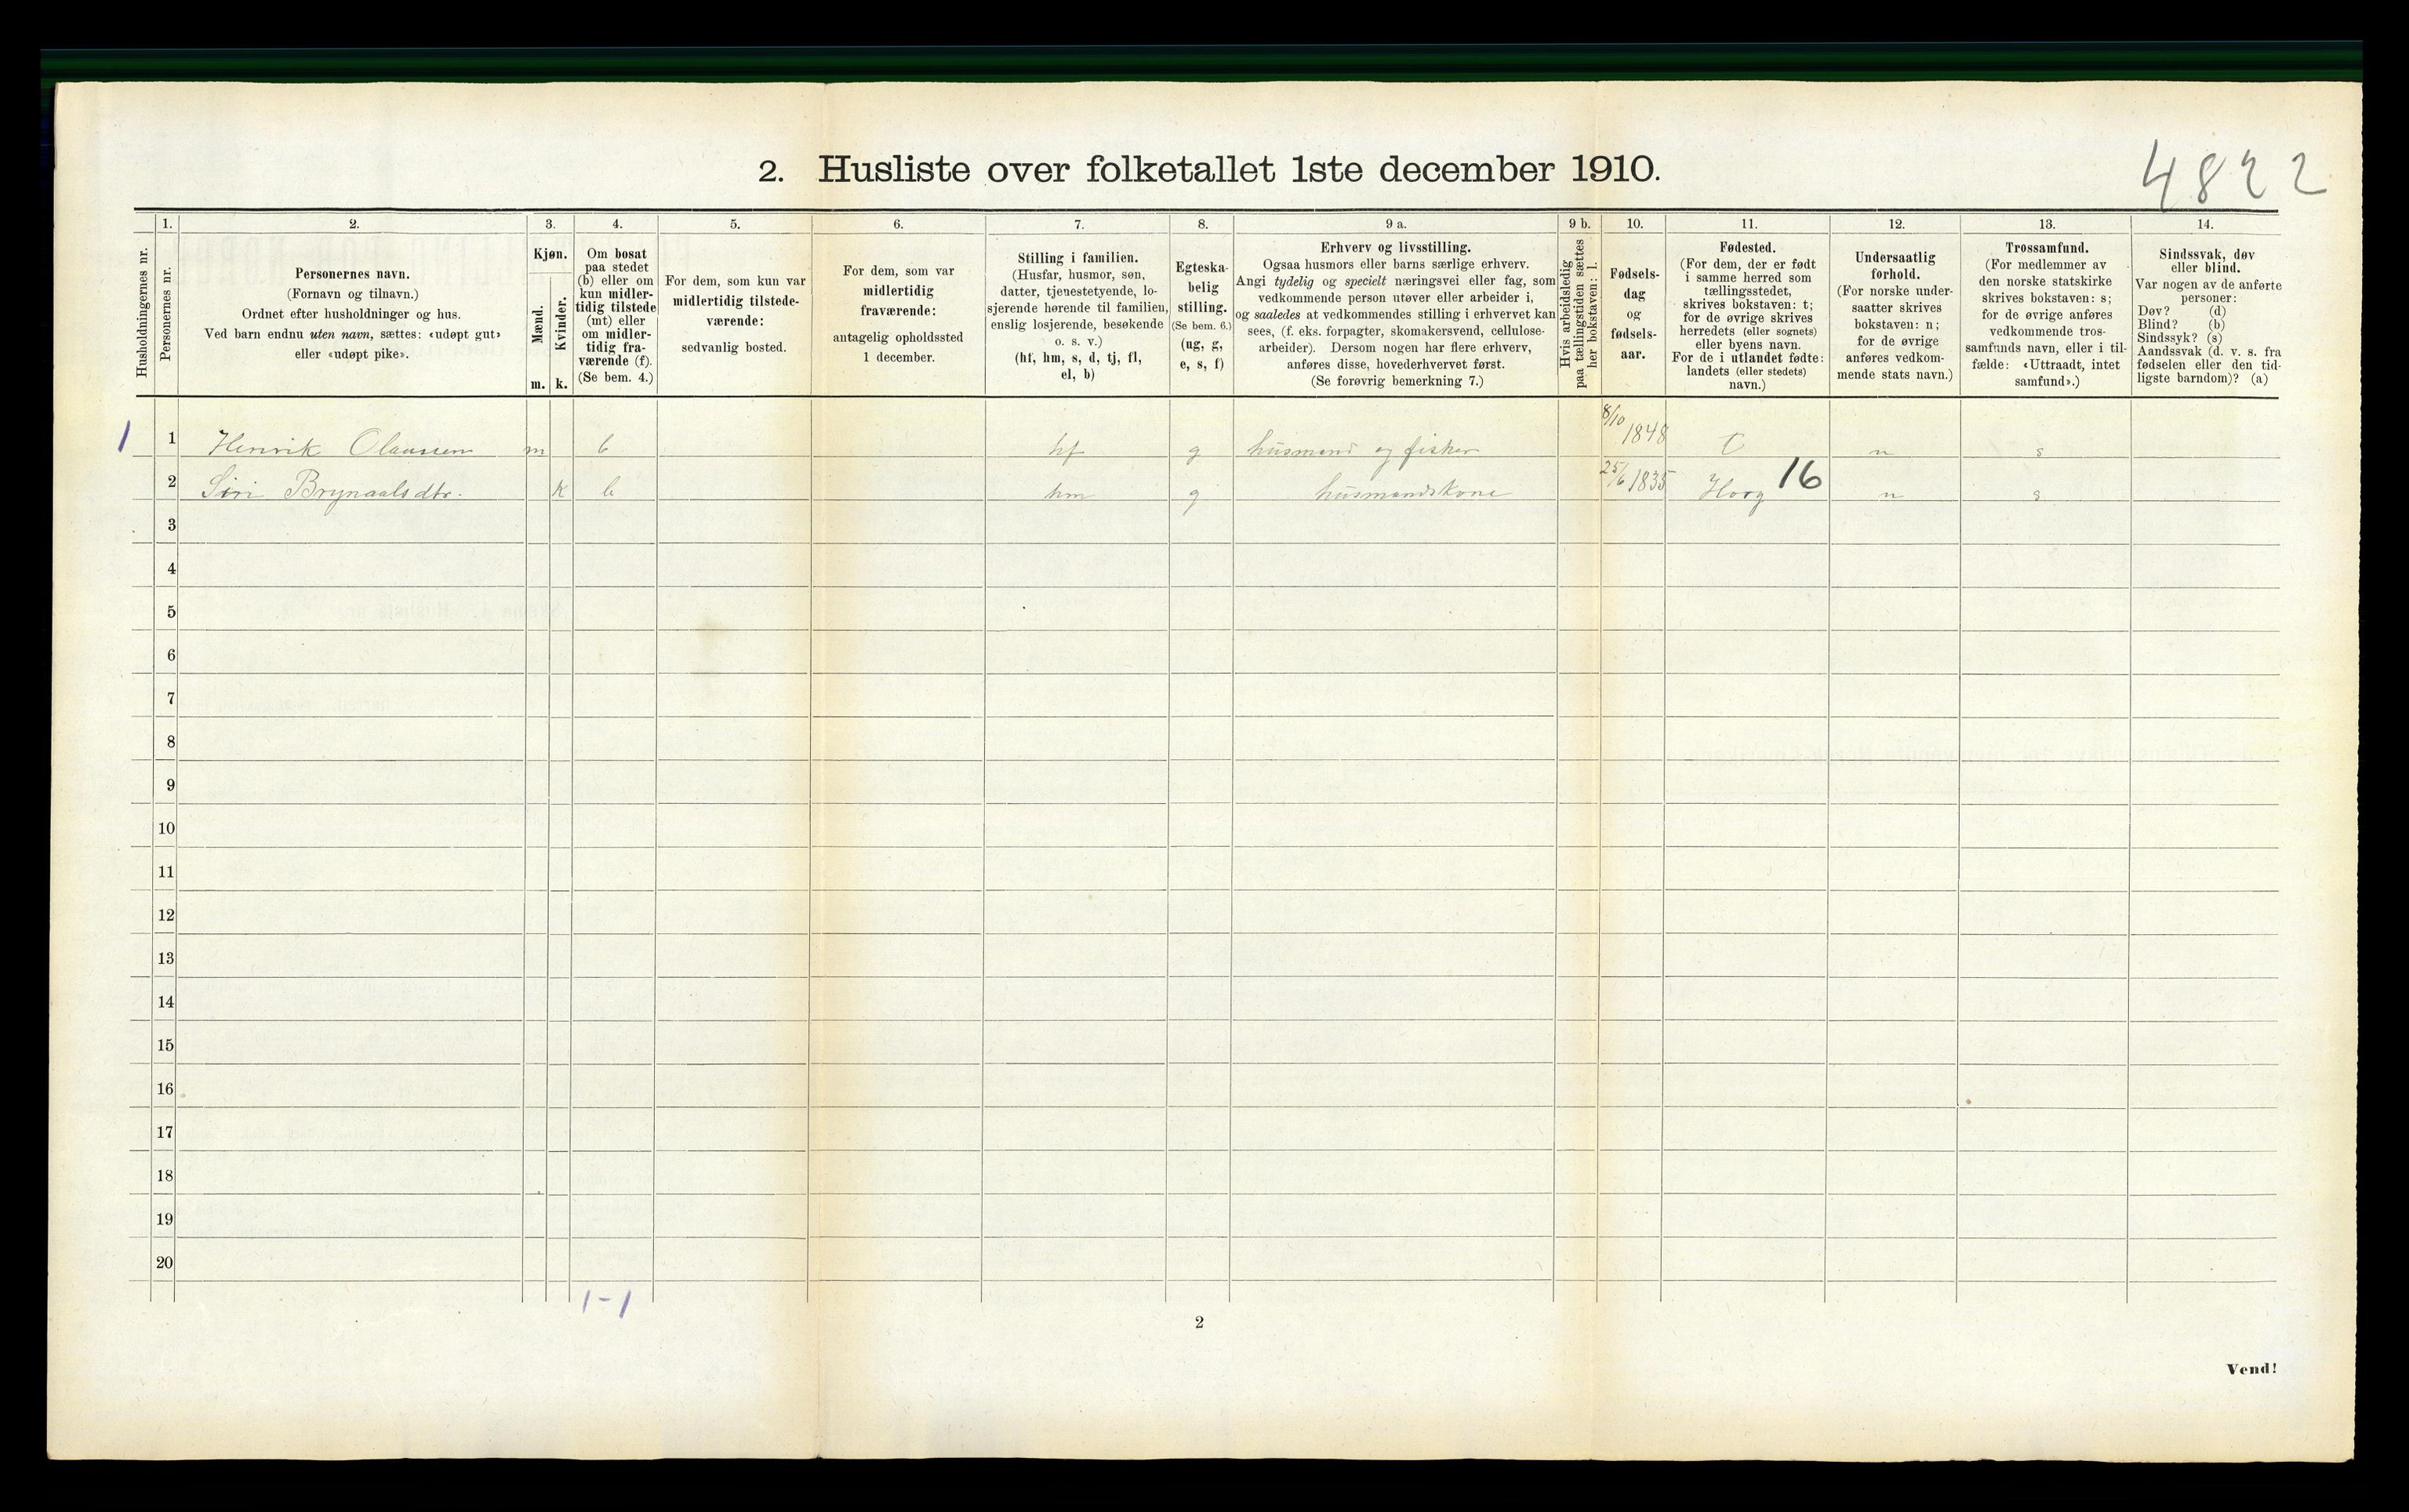 2. Husliste over folketallet 1ste december 1910.
4822
Husholdningernes nr.
1.
Personernes nr.
2.
Personernes navn.
(Fornavn og tilnavn.)
Ordnet efter husholdninger og hus.
Ved barn endnu uten navn, sættes: «udøpt gut»
eller «udøpt pike».
3.
Kjøn.
Mænd.
m.
Kvinder.
k.
4.
Om bosat
paa stedet
(b) eller om
kun midler-
tidig tilstede
(mt) eller
om midler-
tidig fra-
værende (f).
(Se bem. 4.)
5.
For dem, som kun var
midlertidig tilstede-
værende:
sedvanlig bosted.
6.
For dem, som var
midlertidig
fraværende:
antagelig opholdssted
1 december.
7.
Stilling i familien.
(Husfar, husmor, søn,
datter, tjenestetyende, lo-
sjerende hørende til familien,
enslig losjerende, besøkende
o. s. v.)
(hf, hm, s, d, tj, fl,
el, b)
8.
Egteska-
belig
stilling.
(Se bem. 6.)
(ug, g,
e, s, f)
9 a.
Erhverv og livsstilling.
Ogsaa husmors eller barns særlige erhverv.
Angi tydelig og specielt næringsvei eller fag, som
vedkommende person utøver eller arbeider i,
og saaledes at vedkommendes stilling i erhvervet kan
sees, (f. eks. forpagter, skomakersvend, cellulose-
arbeider). Dersom nogen har flere erhverv,
anføres disse, hovederhvervet først.
(Se forøvrig bemerkning 7.)
9 b.
Hvis arbeidsledig
paa tællingstiden sættes
her bokstaven: l.
10.
Fødsels-
dag
og
fødsels-
aar.
11.
Fødested.
(For dem, der er født
i samme herred som
tællingsstedet,
skrives bokstaven: t;
for de øvrige skrives
herredets (eller sognets)
eller byens navn.
For de i utlandet fødte:
landets (eller stedets)
navn.)
12.
Undersaatlig
forhold.
(For norske under-
saatter skrives
bokstaven: n;
for de øvrige
anføres vedkom-
mende stats navn.)
13.
Trossamfund.
(For medlemmer av
den norske statskirke
skrives bokstaven: s;
for de øvrige anføres
vedkommende tros-
samfunds navn, eller i til-
fælde: «Uttraadt, intet
samfund».)
14.
Sindssvak, døv
eller blind.
Var nogen av de anførte
personer:
Døv? (d)
Blind? (b)
Sindssyk? (s)
Aandssvak (d. v. s. fra
fødselen eller den tid-
ligste barndom)? (a)
1 1 Henrik Olaussen m b hf g husmand og fisker 8/10 1848 t n s
2 Siri Brynaalsdtr. k b hm g husmandskone 25/6 1835 Horg 16 n s
3
4
5
6
7
8
9
10
11
12
13
14
15
16
17
18
19
20
1-1
2
Vend!